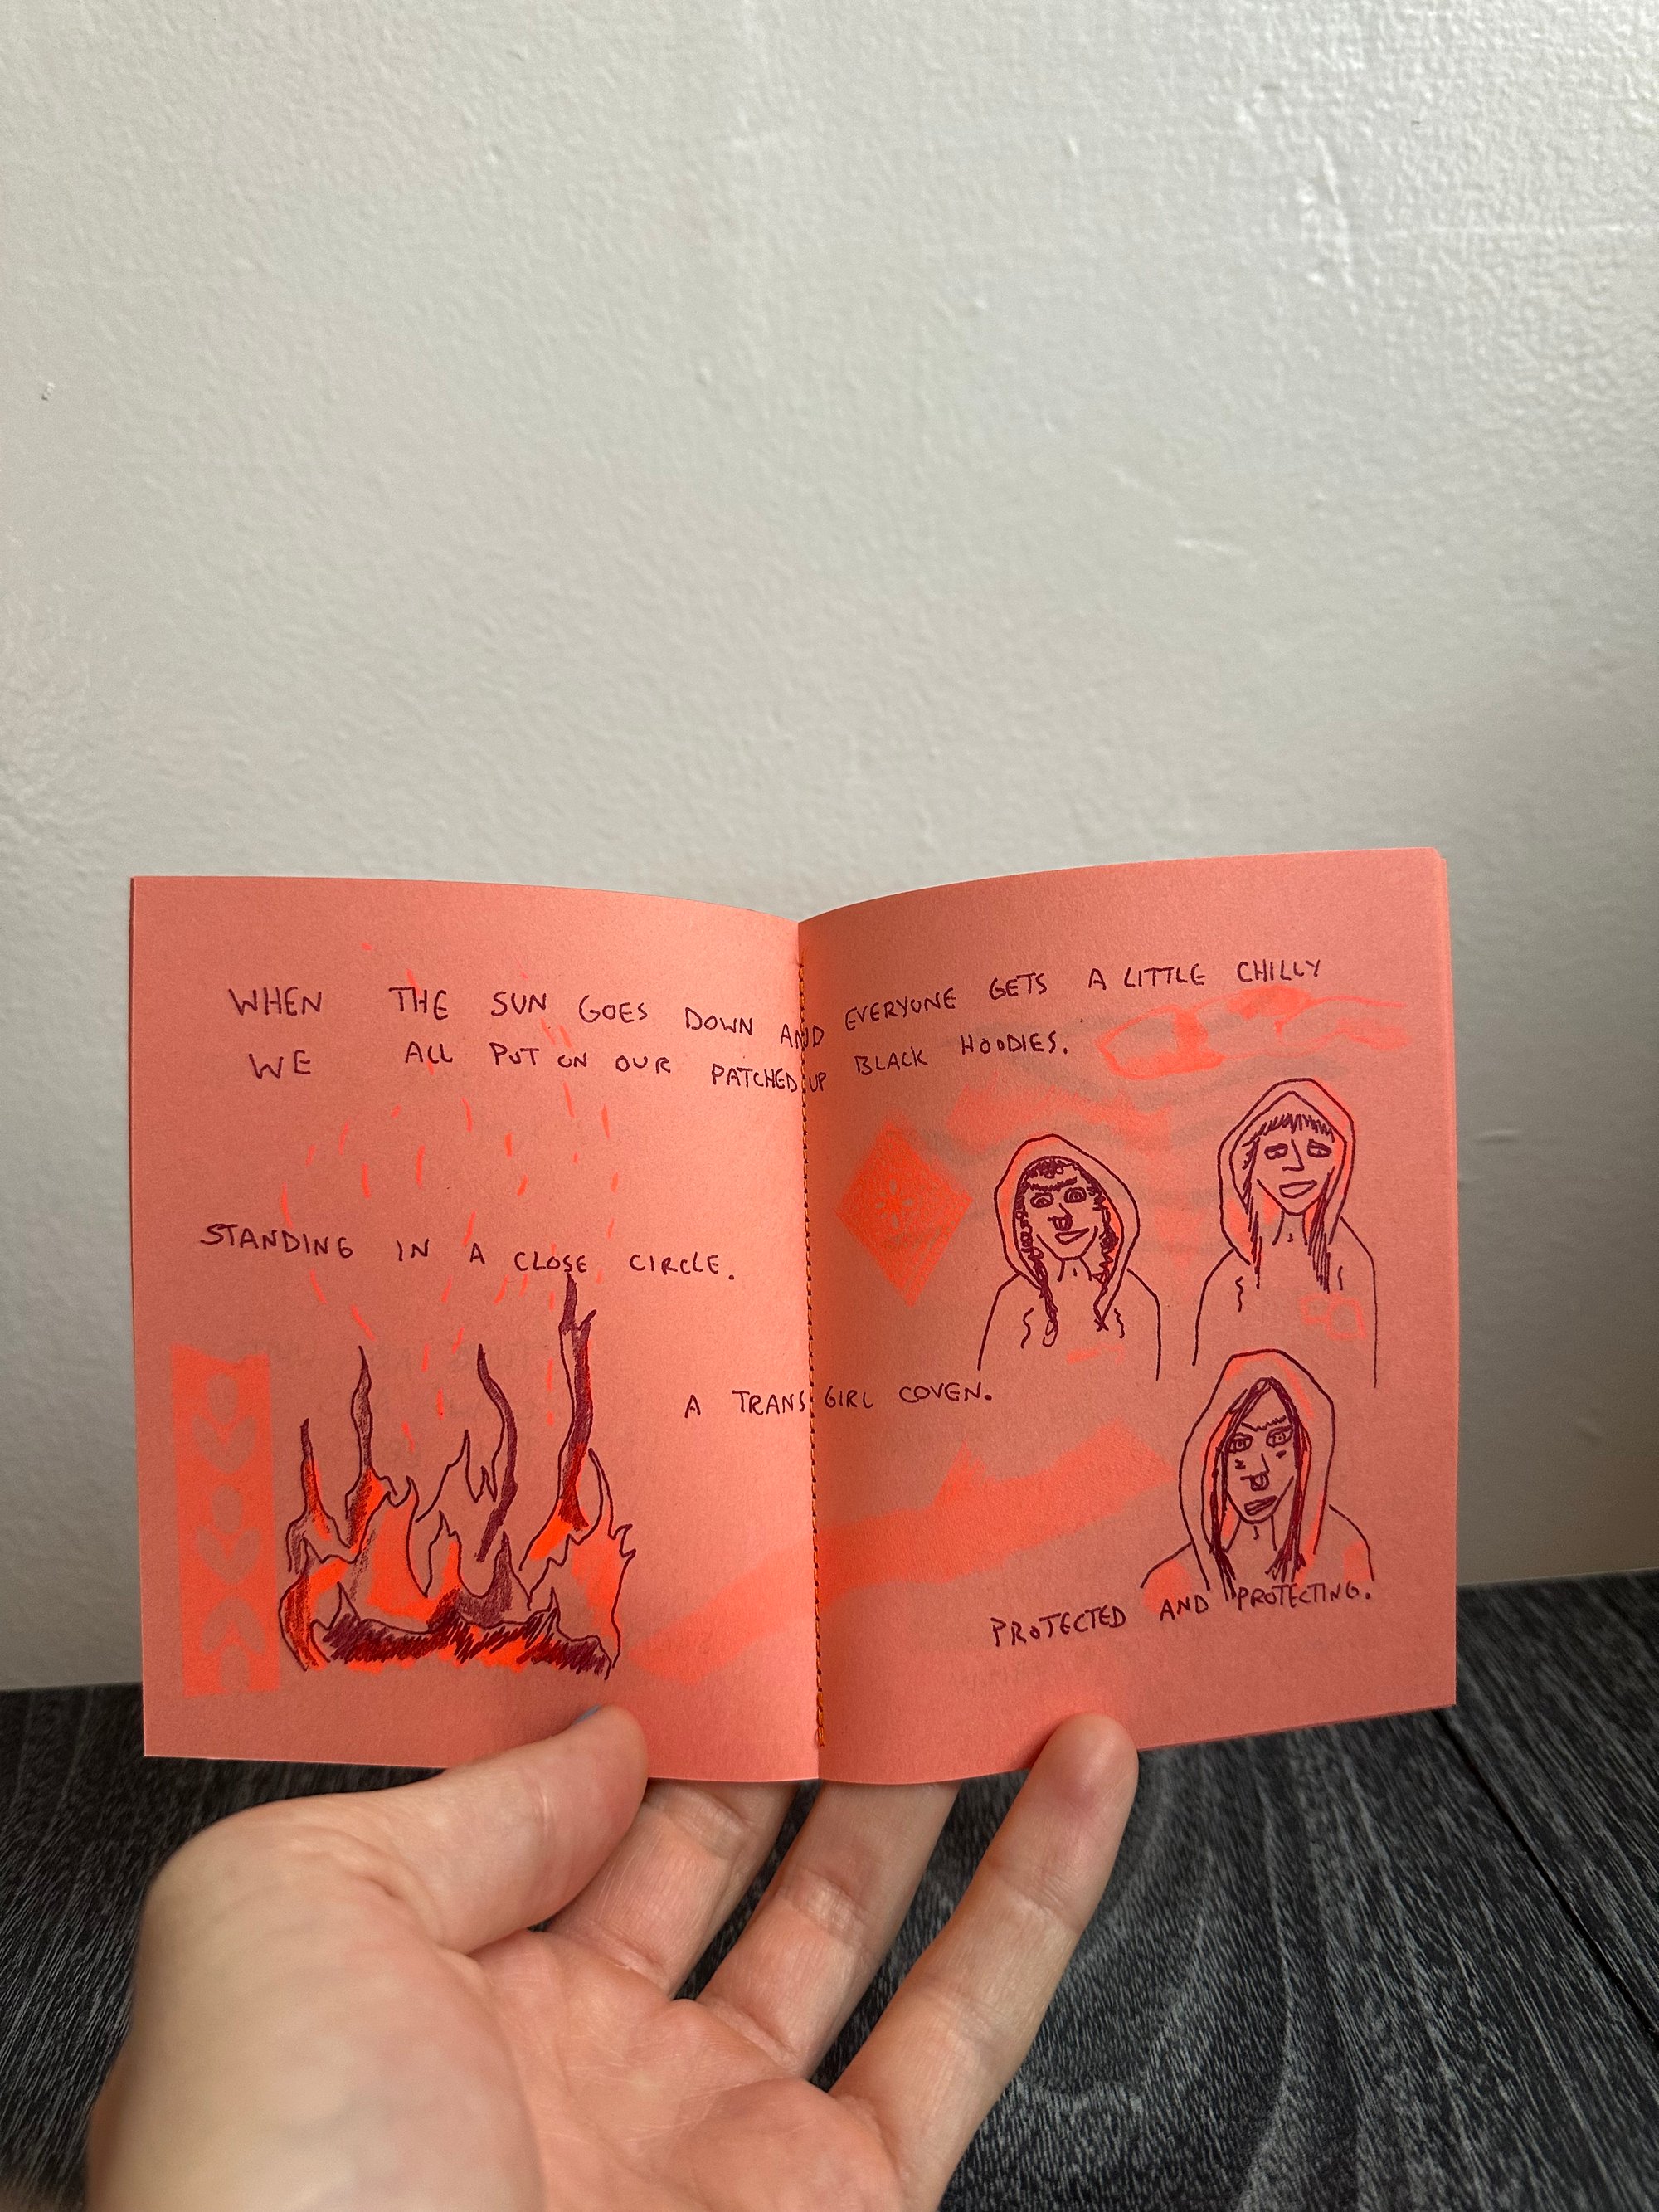 WHEN THE SUN GOES DOWN AND EVERYONE GETS A LITTLE CHILLY
WE ALL PUT ON OUR PATCHED UP BLACK HOODIES.
STANDING IN A CLOSE CIRCLE.
A TRANS GIRL COVEN.
PROTECTED AND PROTECTING.